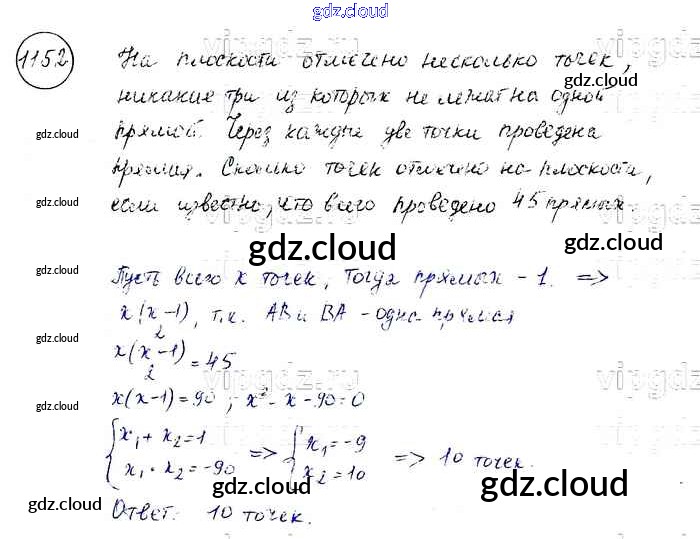 gdz.cloud
1152
На плоскости отмечено несколько точек,
никакие три из которых не лежат на одной
прямой. Через каждые две точки проведена
прямая. Сколько точек отмечено на плоскости,
если известно, что всего проведено 45 прямых.
Пусть всего x точек, тогда прямых - 1. =>
x(x-1)/2, т.к. AB и BA - одна прямая
x(x-1)/2 = 45
x(x-1)=90; x²-x-90=0
{x₁+x₂=1 => {x₁=-9
{x₁·x₂=-90 {x₂=10 => 10 точек.
Ответ: 10 точек.
vipgdz
gdz.cloud
gdz.cloud
gdz.cloud
gdz.cloud
gdz.cloud
gdz.cloud
gdz.cloud
gdz.cloud
gdz.cloud
gdz.cloud
gdz.cloud
gdz.cloud